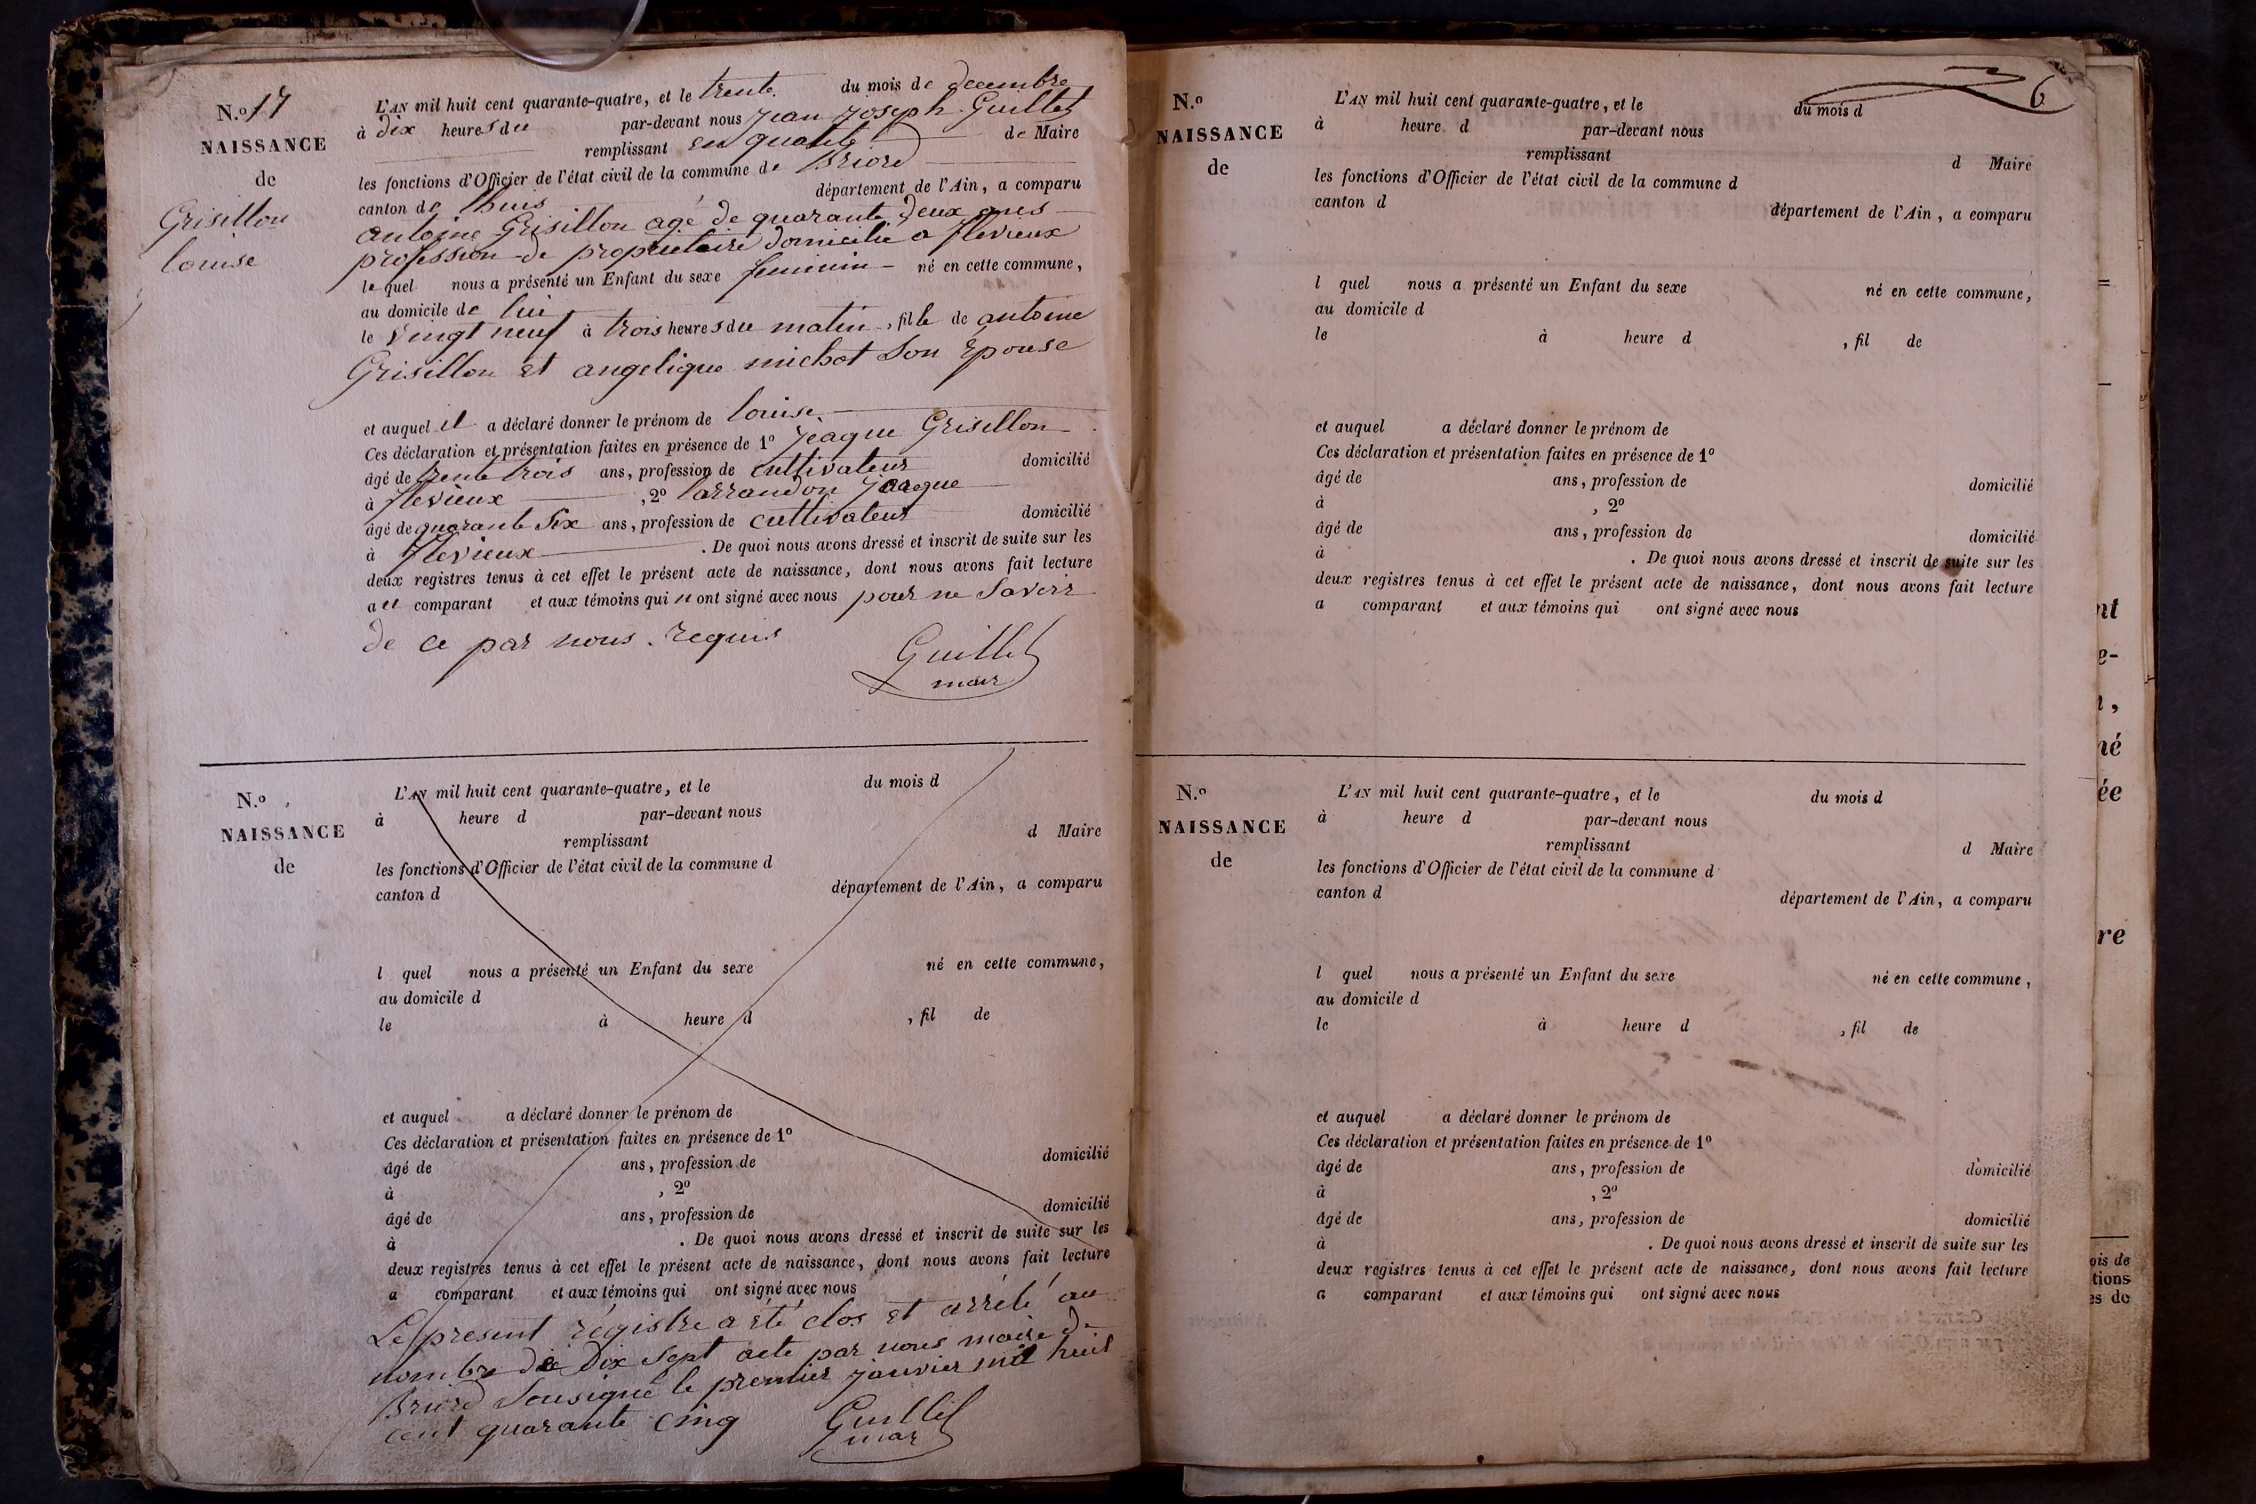 N.º 17
NAISSANCE
de
Grisillon
louise
L'AN mil huit cent quarante-quatre, et le trente du mois de decembre
à dix heures du par-devant nous Jean Joseph Guillet
remplissant en qualité de Maire
les fonctions d'Officier de l'état civil de la commune de Briord
canton de lhuis département de l'Ain, a comparu
antoine Grisillon agé de quarante deux ans
profession de proprietaire domicilié a flevieux
lequel nous a présenté un Enfant du sexe feminin né en cette commune,
au domicile de lui
le vingt neuf à trois heures du matin, fille de antoine
Grisillon et angelique michot Son Epouse
et auquel il a déclaré donner le prénom de louise
Ces déclaration et présentation faites en présence de 1º Jeaque Grisillon
âgé de trente trois ans, profession de cultivateur domicilié
à flevieux, 2º larrandon Jacque
âgé de quarante Six ans, profession de cultivateur domicilié
à flevieux. De quoi nous avons dressé et inscrit de suite sur les
deux registres tenus à cet effet le présent acte de naissance, dont nous avons fait lecture
au comparant et aux témoins qui n ont signé avec nous pour ne Savoir
de ce par nous requis
Guillet
mair
N.º
NAISSANCE
de
L'AN mil huit cent quarante-quatre, et le du mois d
à heure d par-devant nous
remplissant d Maire
les fonctions d'Officier de l'état civil de la commune d
canton d département de l'Ain, a comparu
l quel nous a présenté un Enfant du sexe né en cette commune,
au domicile d
le à heure d , fil de
et auquel a déclaré donner le prénom de
Ces déclaration et présentation faites en présence de 1º
âgé de ans, profession de domicilié
à , 2º
âgé de ans, profession de domicilié
à . De quoi nous avons dressé et inscrit de suite sur les
deux registres tenus à cet effet le présent acte de naissance, dont nous avons fait lecture
a comparant et aux témoins qui ont signé avec nous
Le present régistre a été clos et arrêté au
nombre de Dix Sept acte par nous maire de
Briord Sousigné le premier janvier mil huit
cent quarante cinq
Guillet
mar
6
N.º
NAISSANCE
de
L'AN mil huit cent quarante-quatre, et le du mois d
à heure d par-devant nous
remplissant d Maire
les fonctions d'Officier de l'état civil de la commune d
canton d département de l'Ain, a comparu
l quel nous a présenté un Enfant du sexe né en cette commune,
au domicile d
le à heure d , fil de
et auquel a déclaré donner le prénom de
Ces déclaration et présentation faites en présence de 1º
âgé de ans, profession de domicilié
à , 2º
âgé de ans, profession de domicilié
à . De quoi nous avons dressé et inscrit de suite sur les
deux registres tenus à cet effet le présent acte de naissance, dont nous avons fait lecture
a comparant et aux témoins qui ont signé avec nous
N.º
NAISSANCE
de
L'AN mil huit cent quarante-quatre, et le du mois d
à heure d par-devant nous
remplissant d Maire
les fonctions d'Officier de l'état civil de la commune d
canton d département de l'Ain, a comparu
l quel nous a présenté un Enfant du sexe né en cette commune,
au domicile d
le à heure d , fil de
et auquel a déclaré donner le prénom de
Ces déclaration et présentation faites en présence de 1º
âgé de ans, profession de domicilié
à , 2º
âgé de ans, profession de domicilié
à . De quoi nous avons dressé et inscrit de suite sur les
deux registres tenus à cet effet le présent acte de naissance, dont nous avons fait lecture
a comparant et aux témoins qui ont signé avec nous